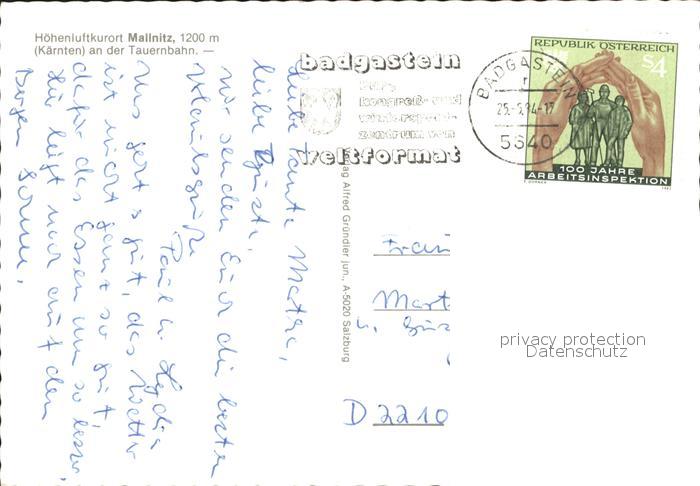 Höhenluftkurort Mallnitz, 1200 m
(Kärnten) an der Tauernbahn. —
badgastein
kur-,
kongreß- und
wintersport-
zentrum von
weltformat
BADGASTEIN
r
25.-5.84-17
5640
REPUBLIK ÖSTERREICH
S4
100 JAHRE
ARBEITSINSPEKTION
Liebe Tante Marta,
liebe
wir senden Euch die besten
Urlaubsgrüße
Paul u. Lydia
Uns geht's gut, das Wetter
ist nicht ganz so gut,
dafür das Essen um so besser.
Die Luft
Bergen
Verlag Alfred Gründler jun., A-5020 Salzburg
Frau
Mart
u.
D 2210
privacy protection
Datenschutz